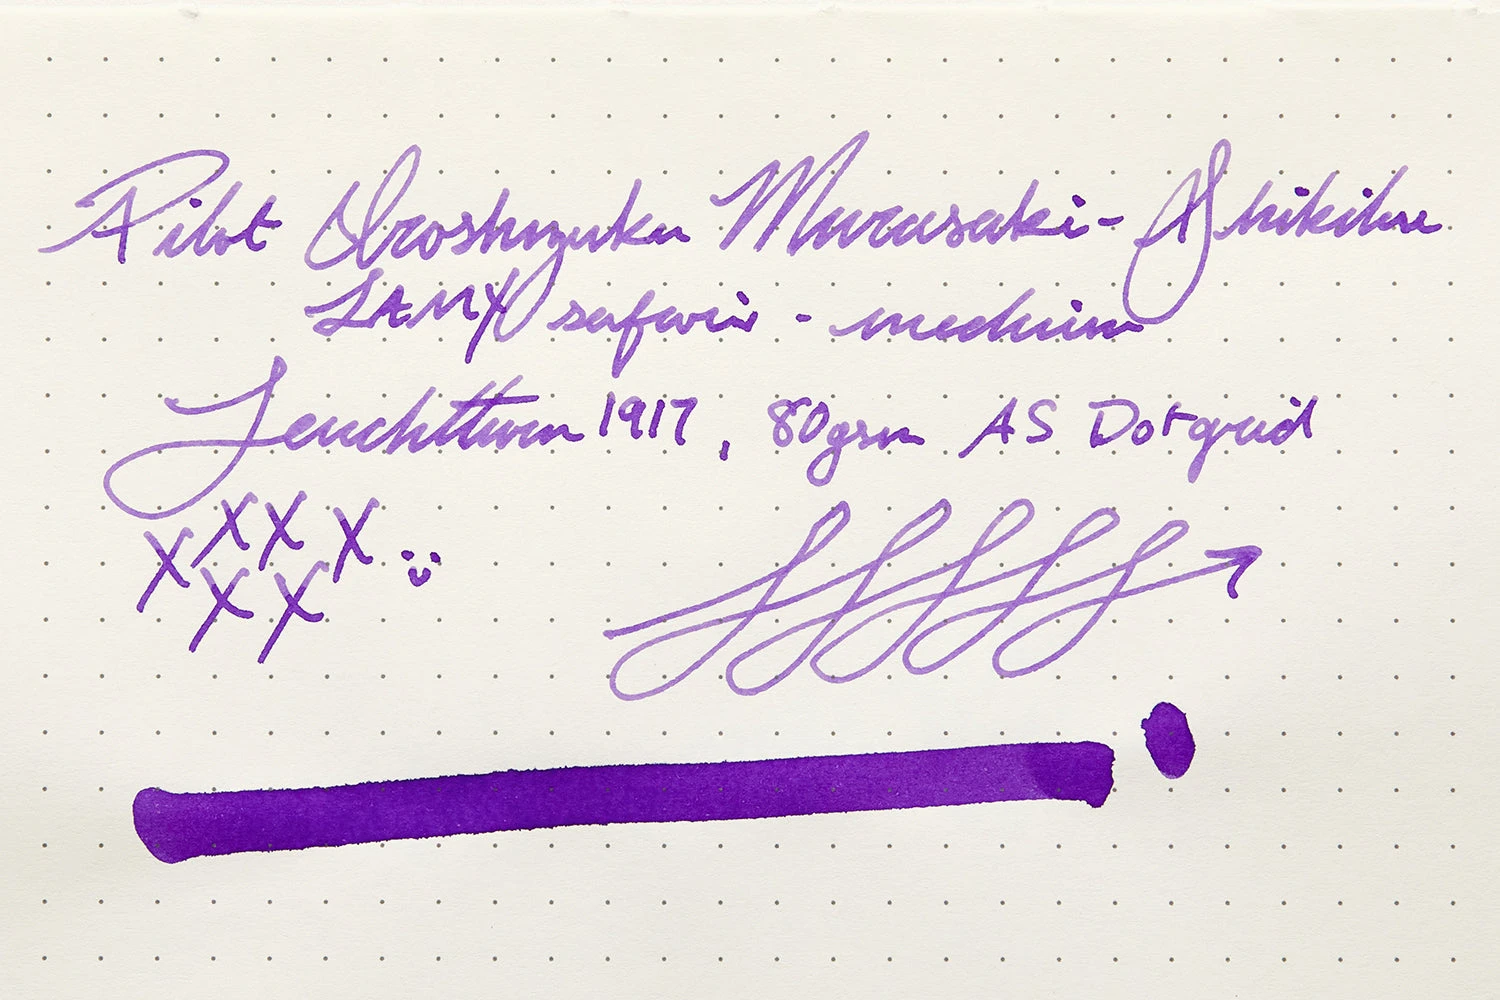 Pilot Iroshizuku Murasaki-Shikibu
LAMY safari - medium
Leuchtturm 1917, 80gsm A5 Dotgrid
X X X X X X